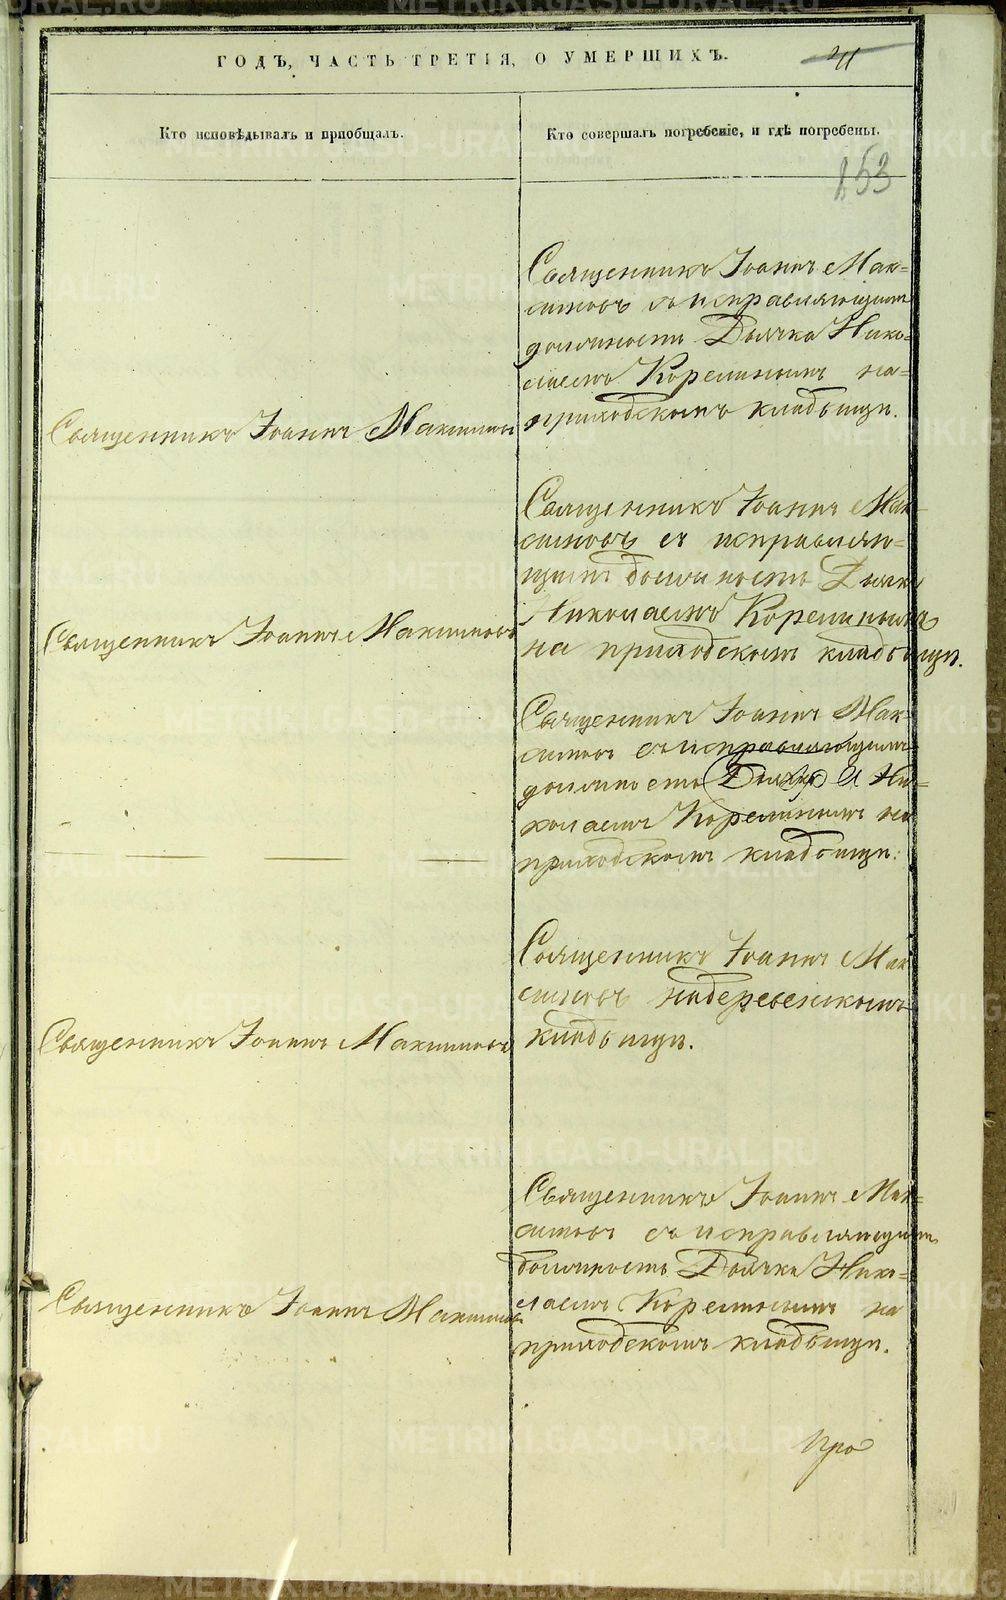 ГОДЪ, ЧАСТЬ ТРЕТІЯ, О УМЕРШИХЪ.
Кто исповѣдывалъ и пріобщалъ.
Кто совершалъ погребеніе, и гдѣ погребены.
153
Священникъ Іоаннъ Мак=
симовъ съ исправляющимъ
должность Дьячка Нико=
лаемъ Корелинымъ на
приходскомъ кладбищѣ.
Священникъ Іоаннъ Максимовъ
Священникъ Іоаннъ Мак-
симовъ съ исправляю=
щимъ должность Дьячка
Николаемъ Корелинымъ
на приходскомъ кладбищѣ.
Священникъ Іоаннъ Максимовъ
Священникъ Іоаннъ Мак-
симовъ съ исправляющимъ
должность Дьячка Ни=
колаемъ Корелинымъ на
приходскомъ кладбищѣ.
Священникъ Іоаннъ Мак
симовъ на деревенскомъ
кладбищѣ.
Священникъ Іоаннъ Максимовъ
Священникъ Іоаннъ Мак-
симовъ съ исправляющимъ
должность Дьячка Нико=
лаемъ Корелинымъ на
приходскомъ кладбищѣ.
Священникъ Іоаннъ Максимовъ
METRIKI.GASO-URAL.RU